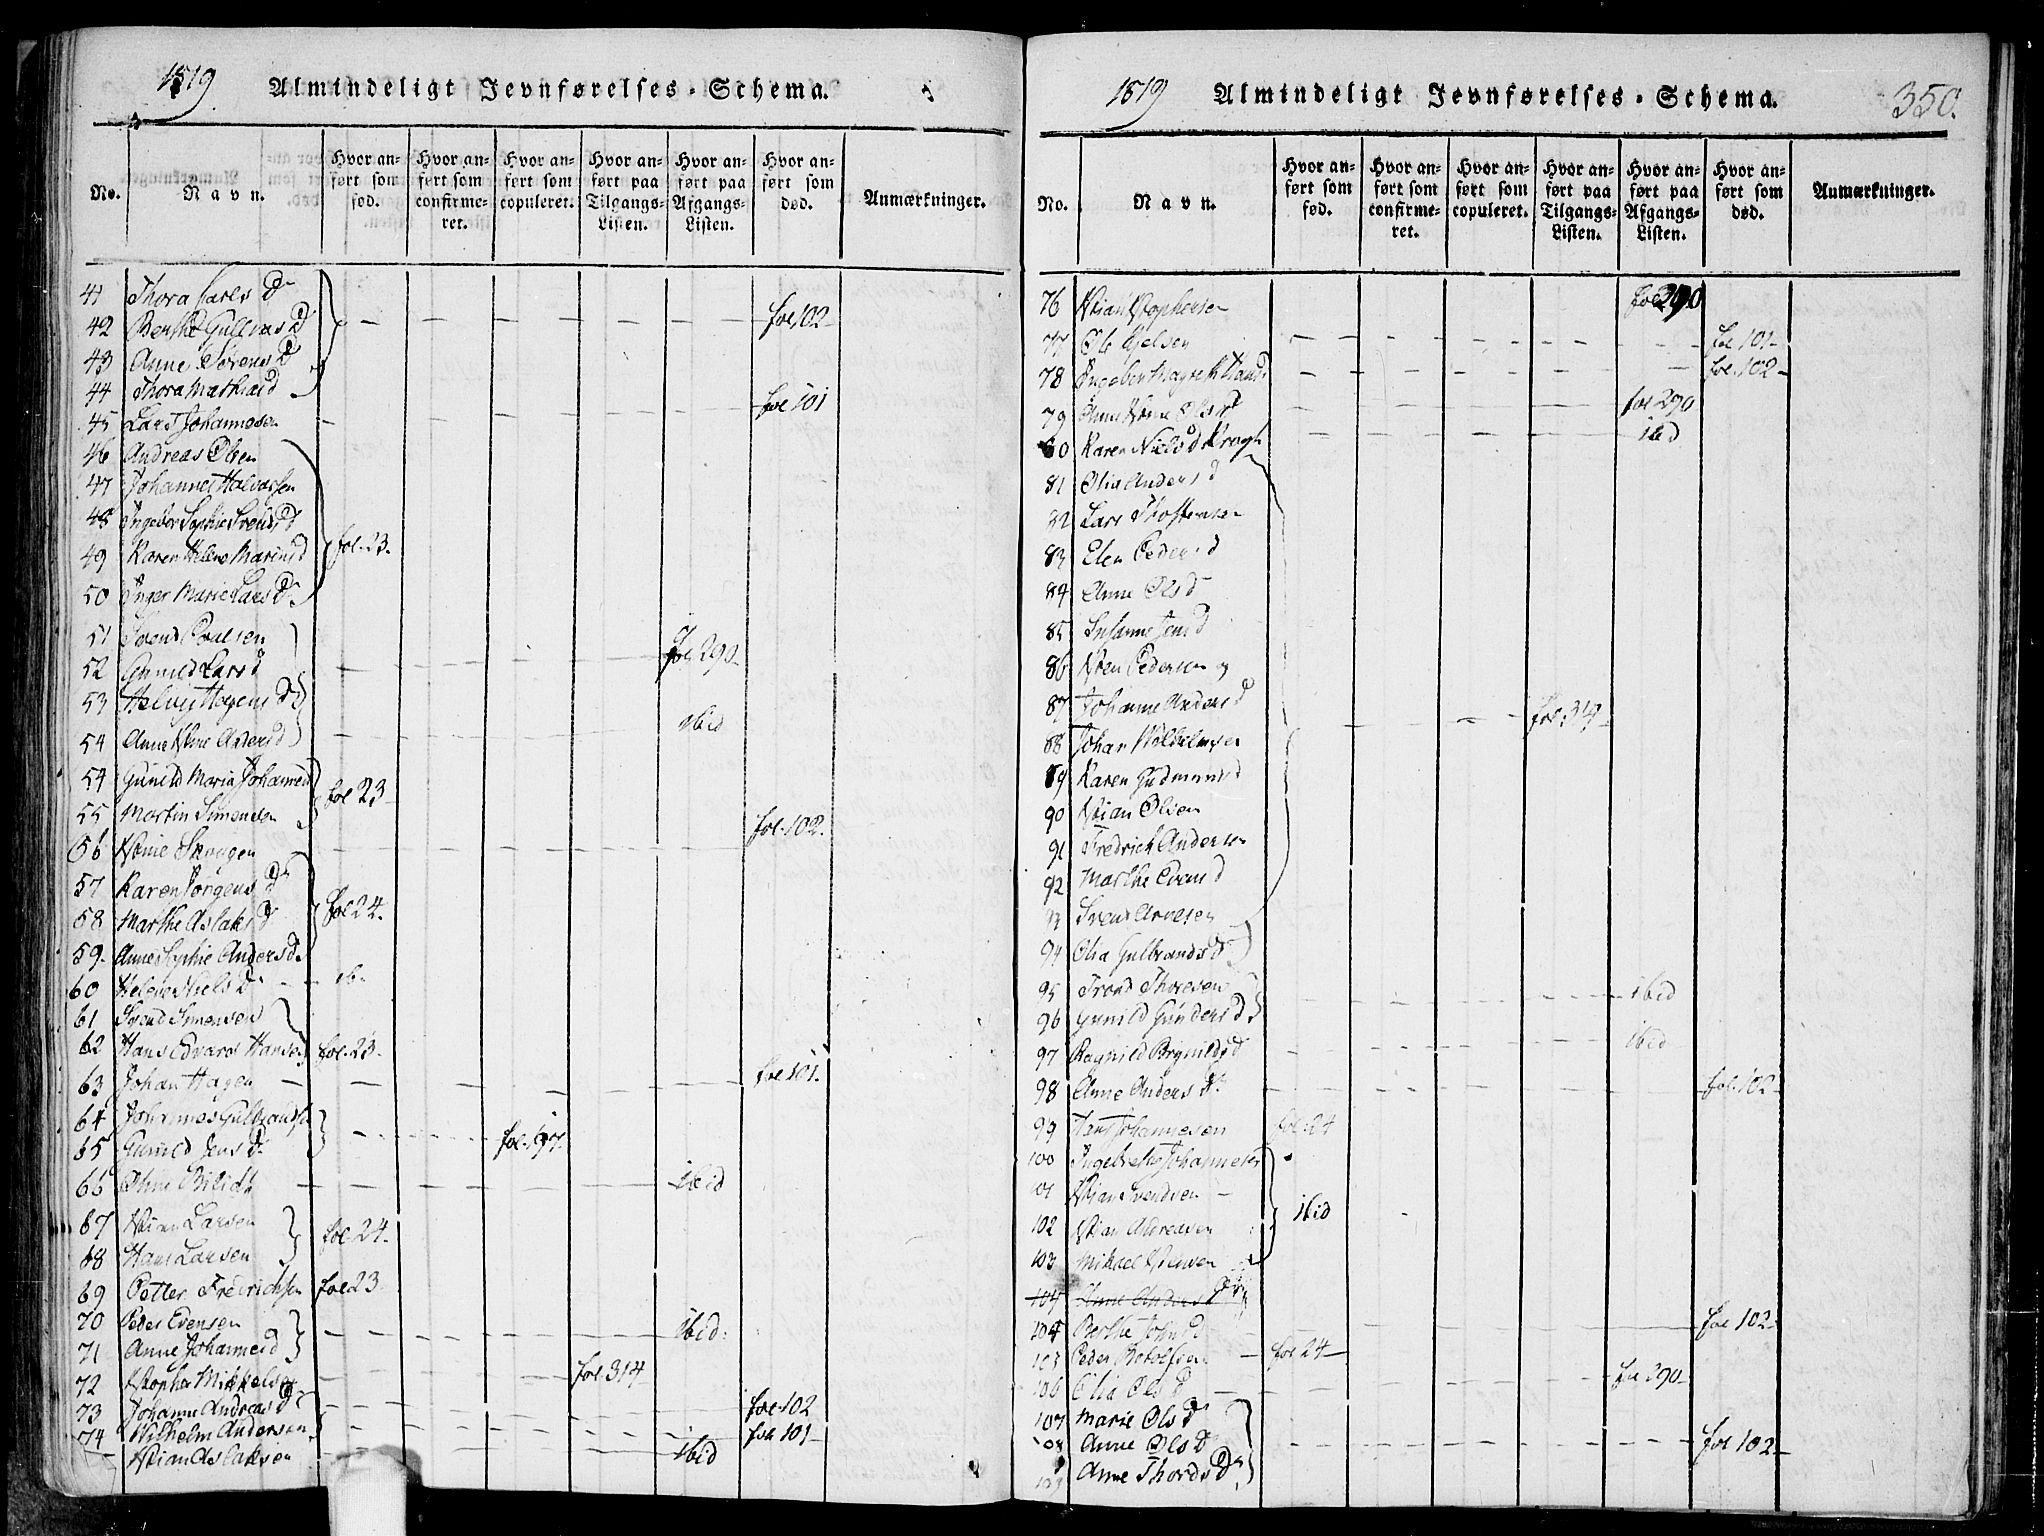 1819. Almindeligt Jevnførelses-Schema.
No.
Navn.
Hvor anført som fød.
Hvor anført som confirmeret.
Hvor anført som copuleret.
Hvor anført paa Tilgangs-Listen.
Hvor anført paa Afgangs-Listen.
Hvor anført som død.
Anmærkninger.
41 Thora Lars D
42 Berthe Gullvas D fol 102
43 Anne Sørens D
44 Thora Mathias d
45 Lars Johannesen fol 101
46 Andreas Olsen
47 Johannes Halvorsen
48 Ingebor Sophie Svends d
49 Karen Helene Marius d fol. 23.
50 Inger Marie Lars D
51 Svend Poulsen
52 Gunild Lars d fol 290
53 Helvig Hagens D
54 Anne Anders d ibid
54 Gunild Maria Johannes d fol 23
55 Martin Simensen
56 Skougen fol. 102.
57 Karen Jørgens D
58 Marthe Aslaks D fol 24.
59. Anne Sophie Anders d.
60 Helene Niels D ib.
61 Svend Simensen
62 Hans Edvard Hansen fol. 23.
63 Johan Hagen fol 101.
64 Johannes Gulbrands.
65 Gunild Jens D fol. 197.
66 ibid
67 Larsen fol 24.
68 Hans Larsen
69 Petter Fredrichsen fol 23
70 Peder Evensen
71 Anne Johannes d ibid.
72 Mikkelsen fol. 314
73 Johanne Andreas D fol 102
74 Wilhelm Andersen fol 101
Aslaksen ibid
1819 Almindeligt Jevnførelses-Schema. 350.
No.
Navn.
Hvor anført som fød.
Hvor anført som confirmeret.
Hvor anført som copuleret.
Hvor anført paa Tilgangs-Listen.
Hvor anført paa Afgangs-Listen.
Hvor anført som død.
Anmærkninger.
76 fol 290
77 Ole fol 101
78 Ingebor fol. 102
79 Anne Ols D fol 290
80 Karen Niels d Krogh ibid
81 Olia Anders d
82 Lars
83 Elen Peders d
84 Anne Ols d
85 Susanne Jens d
86 Pedersen og
87 Johanne Anders d fol 314
88 Johan Wilhelmsen
89 Karen Gudmunds d
90 Olsen
91 Fredrich Andersen
92 Marthe Evens d
93 Svend
94 Olia Gulbrands D
95 Trond Thoresen ibid
96 Gunild Gunders D
97 Ragnild Brynilds d ibid
98 Anne Anders D fol. 102
99 Hans Johannesen fol. 24
100 Johannesen
101 Svendsen
102 Andreasen ibid
103 Mikael
104 Anne Anders D
104 Berthe Johns d fol 102
105 Peder fol 24
106 Olia Ols D fol 290
107 Marie Ols D
108 Anne Ols D fol 102
109 Anne Thords D